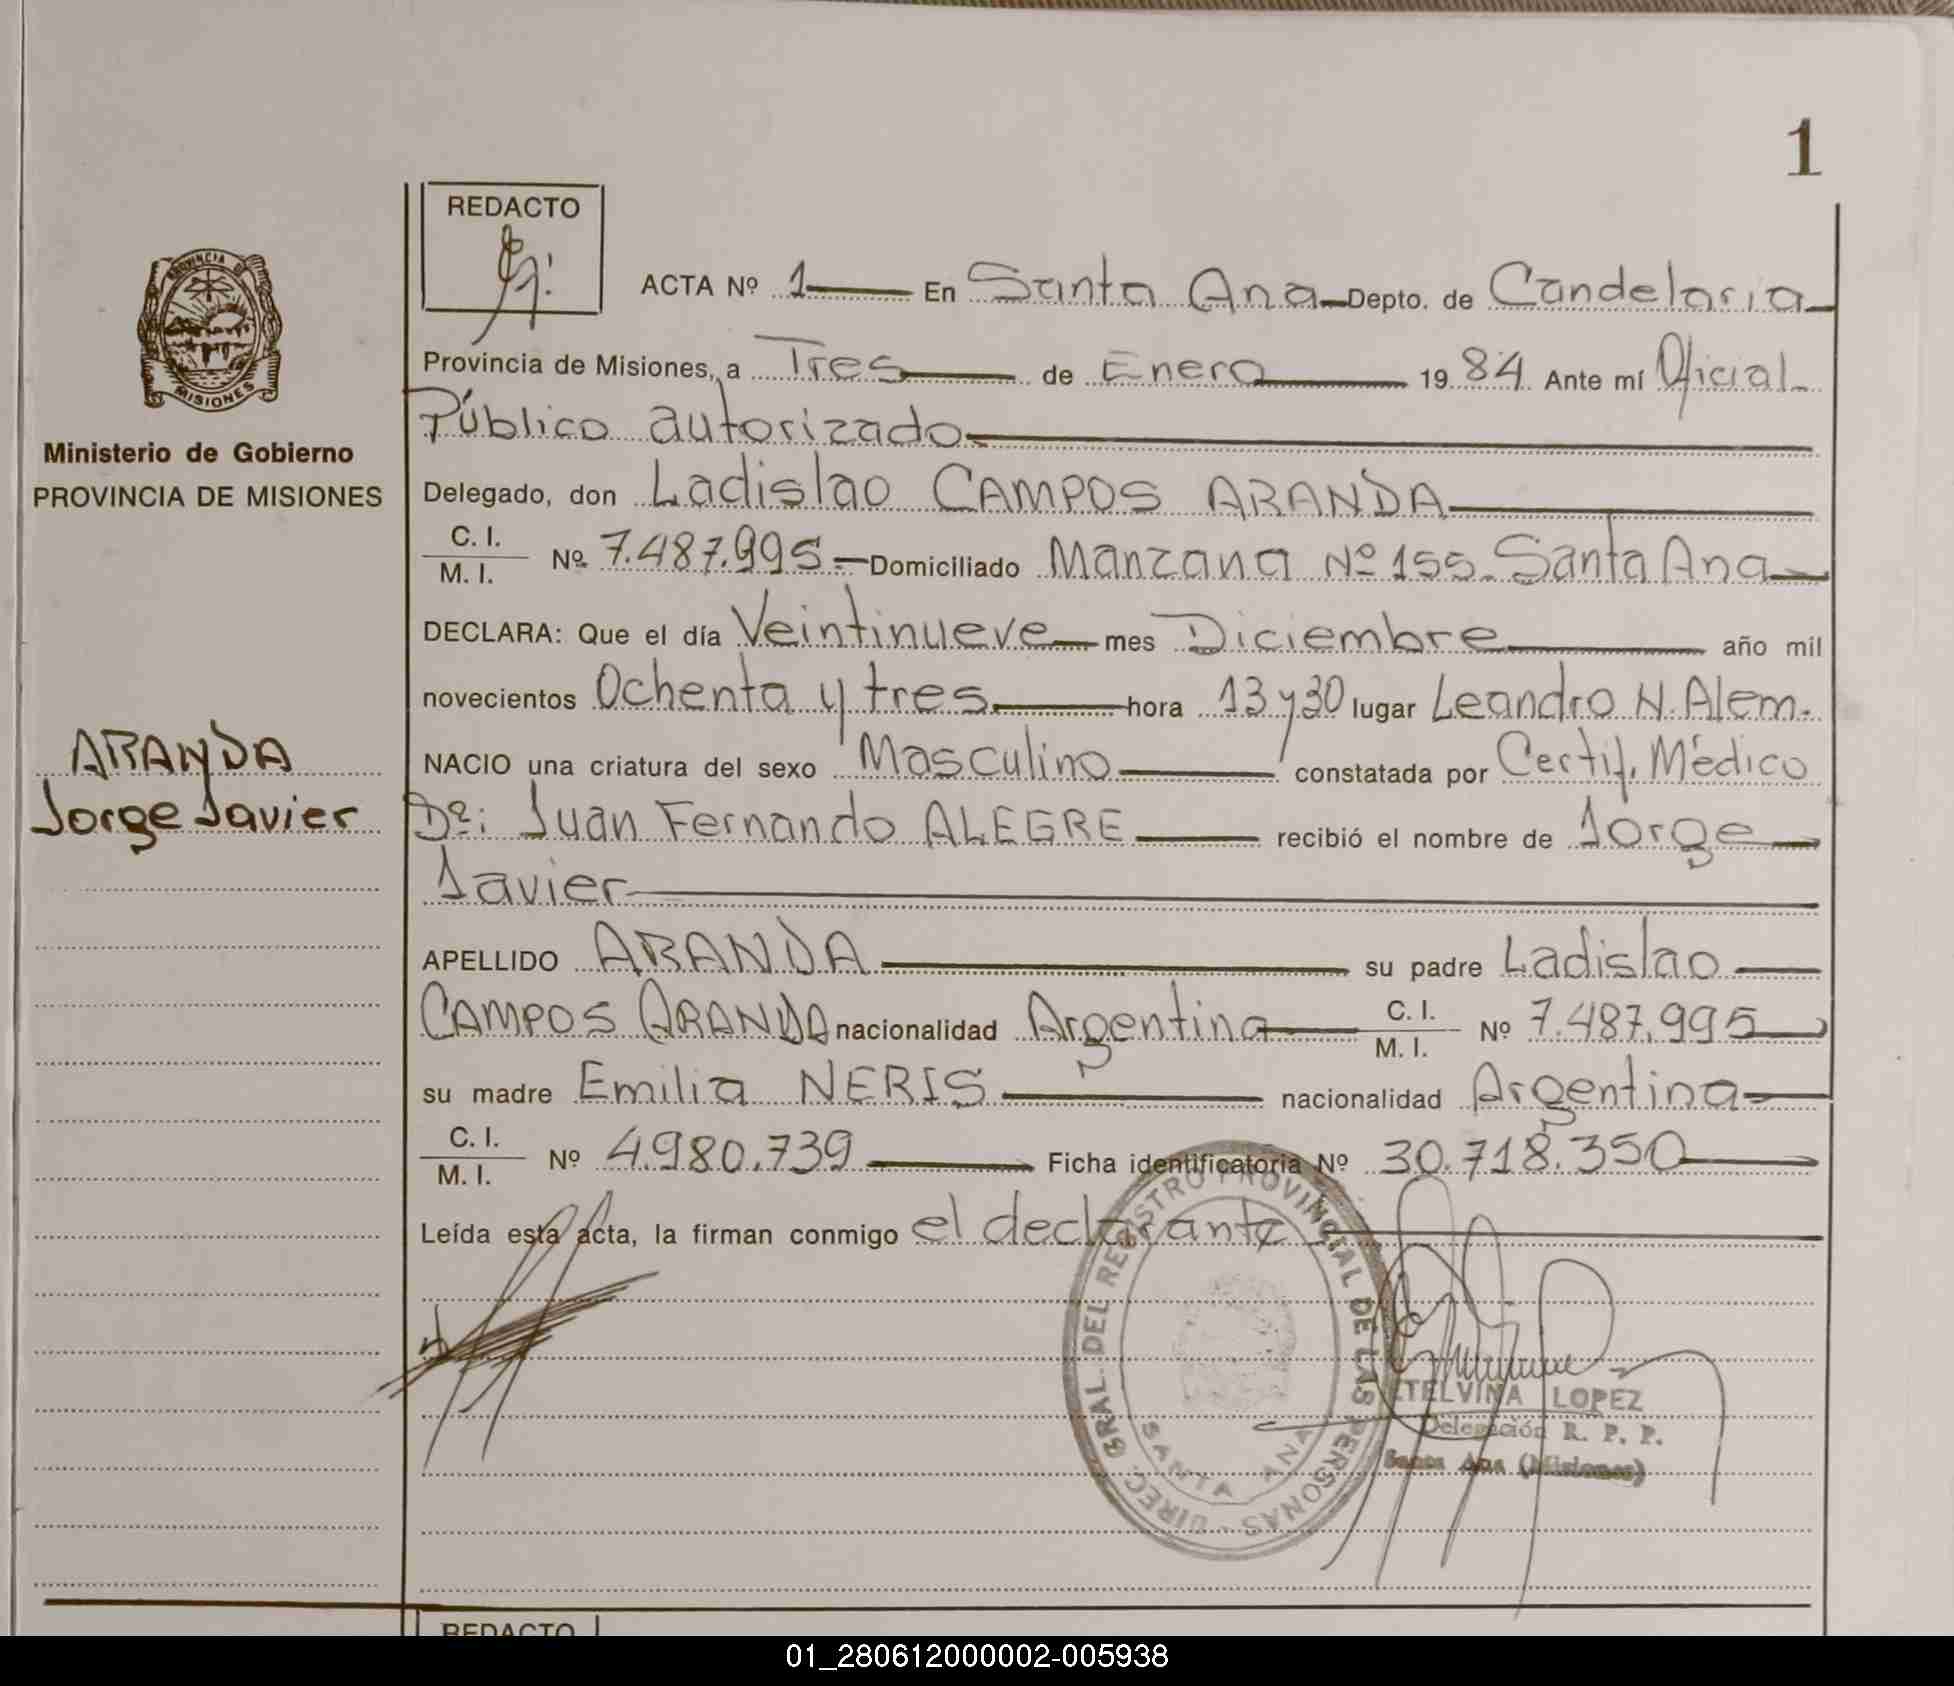 1
REDACTO
ACTA Nº 1 En Santa Ana Depto. de Candelaria
Provincia de Misiones, a Tres de Enero 1984 Ante mí Oficial
Público autorizado
Delegado, don Ladislao CAMPOS ARANDA
C. I.
M. I. Nº 7.487.995.- Domiciliado Manzana Nº 155. Santa Ana
DECLARA: Que el día Veintinueve mes Diciembre año mil
novecientos Ochenta y tres hora 13 y 30 lugar Leandro N. Alem.
NACIO una criatura del sexo Masculino constatada por Certif. Médico
Dº: Juan Fernando ALEGRE recibió el nombre de Jorge
Javier
APELLIDO ARANDA su padre Ladislao
CAMPOS ARANDA nacionalidad Argentina C. I. M. I. Nº 7.487.995
su madre Emilia NERIS nacionalidad Argentina
C. I.
M. I. Nº 4.980.739 Ficha identificatoria Nº 30.718.350
Leída esta acta, la firman conmigo el declarante
PROVINCIA D
MISIONES
Ministerio de Gobierno
PROVINCIA DE MISIONES
ARANDA
Jorge Javier
DIREC. GRAL. DEL REGISTRO PROVINCIAL DE LAS PERSONAS -
SANTA ANA
ETELVINA LOPEZ
Delegación R. P. P.
Santa Ana (Misiones)
REDACTO
01_280612000002-005938